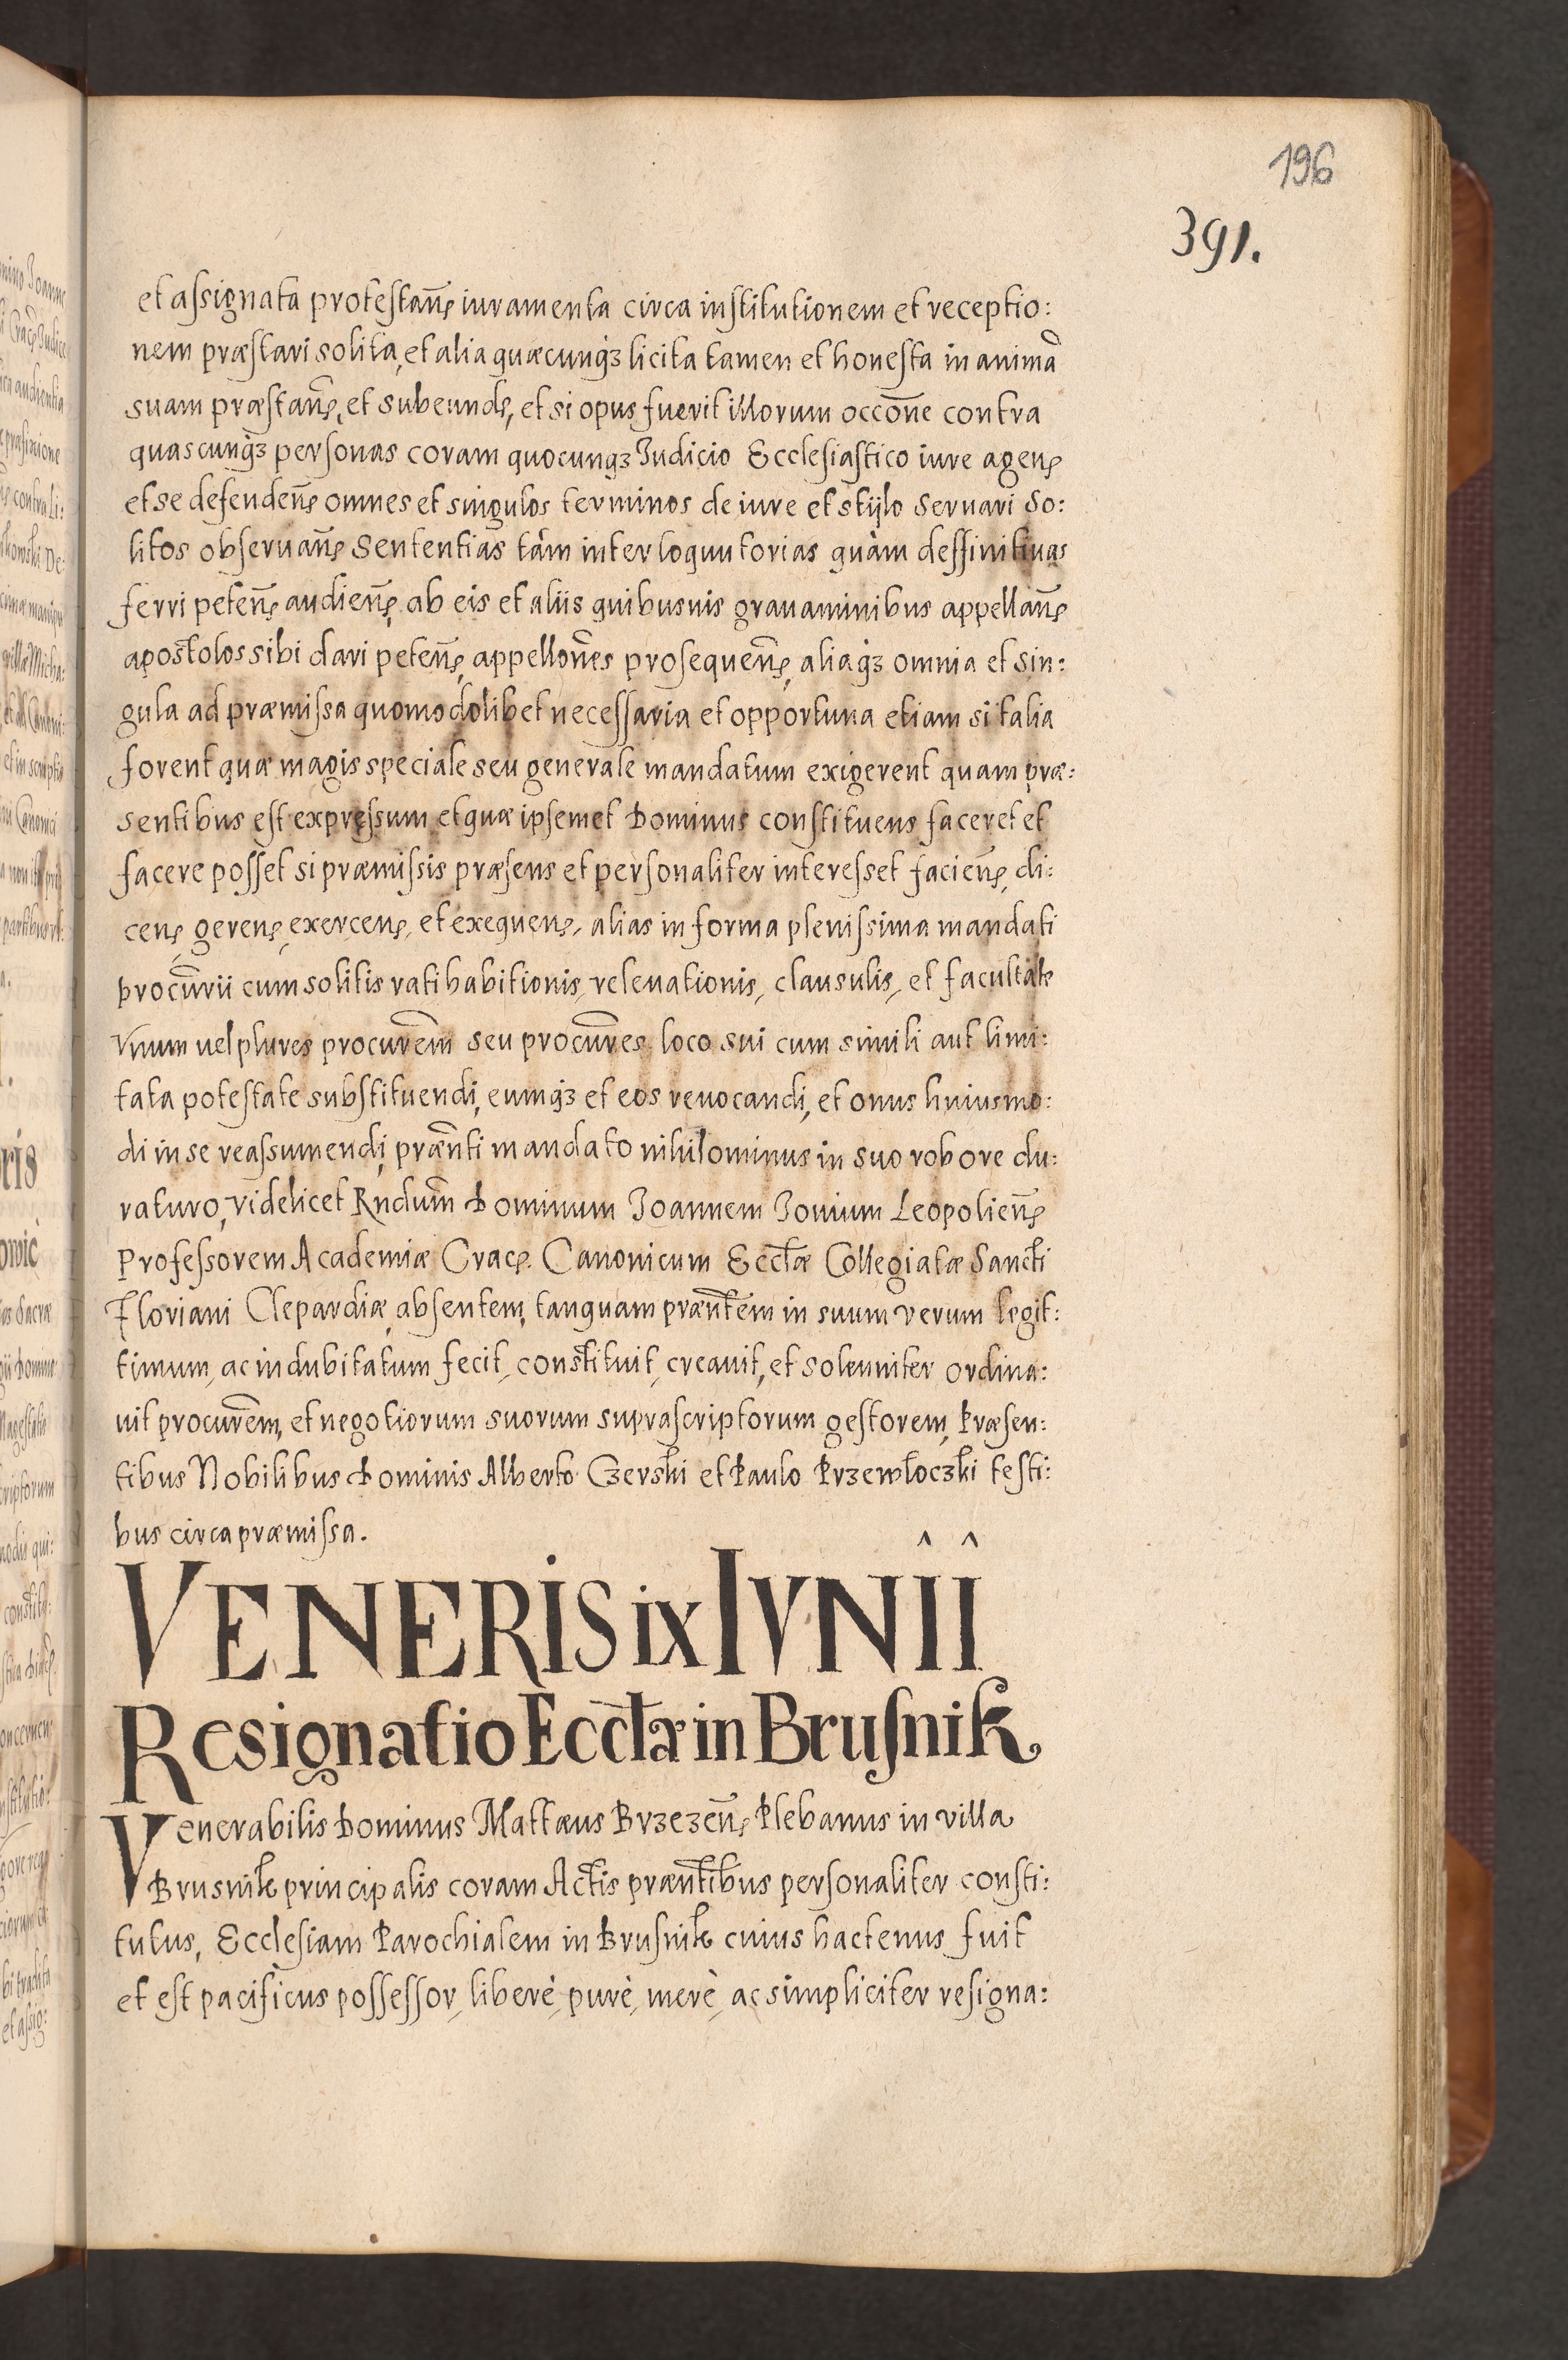 196
391.
et aſsignata proteſtañę iuramenta circa inſtitutionem et receptio:
nem præſtari solita, et alia quæcunqꝫ licita tamen et honeſta in animã
suam præſtañę, et subeundę, et si opus fuerit illorum occõne contra
quascunqꝫ perſonas coram quocunqꝫ Iudicio Eccleſiaſtico iure agenę
et se defendeñę omnes et singulos terminos de iure et stÿlo seruari so:
litos obſeruañę Sententias tàm interloquutorias quàm deffinitiuas
ferri peteñę audieñę, ab eis et aliis quibusuis grauaminibus appellañę
apostolos sibi dari peteñę, appellõnes proſequeñę, aliaqꝫ omnia et sin:
gula ad præmiſsa quomodolibet neceſſaria et opportuna etiam si talia
forent quæ magis speciale seu generale mandatum exigerent quam præ:
sentibus eſt expreſsum et quæ ipſemet Dominus conſtituens faceret et
facere poſſet si præmiſsis præſens et perſonaliter intereſset facieñę, di:
cenę gerenę, exercenę, et exequenę, alias in forma pleniſsima mandati
procur̃ii cum solitis ratihabitionis, releuationis, clausulis, et facultate
vnum uel plures procurem̃ seu procur̃es loco sui cum simili aut limi:
tata poteſtate subſtituendi, eumqꝫ et eos reuocandi, et onus huiusmo:
di in se reaſsumendi, præñti mandato nihilominus in suo robore du:
raturo, videlicet Rndum̃ Dominum Joannem Jouium Leopolieñę
Profeſsorem Academiæ Cracę. Canonicum Eccłæ Collegiatæ Sancti
Floriani Clepardiæ, absentem, tanquam præñtem in suum verum legit:
timum, ac indubitatum fecit, conſtituit, creauit, et solenniter ordina:
uit procurem̃, et negotiorum suorum supraſcriptorum geſtorem, Præſen:
tibus Nobilibus Dominis Alberto Czerski et Paulo Przewłoczki teſti:
bus circa præmiſsa.
VENERIS ix IVNII
Resignatio Eccłæ in Bruſnik
Venerabilis Dominus Mattæus Brzezeñę Plebanus in villa
Brusnik principalis coram Actis præñtibus perſonaliter conſti:
tutus, Eccleſiam Parochialem in Bruſnik cuius hactenus fuit
et eſt pacificus poſſeſſor, liberè, purè, merè ac simpliciter reſigna: